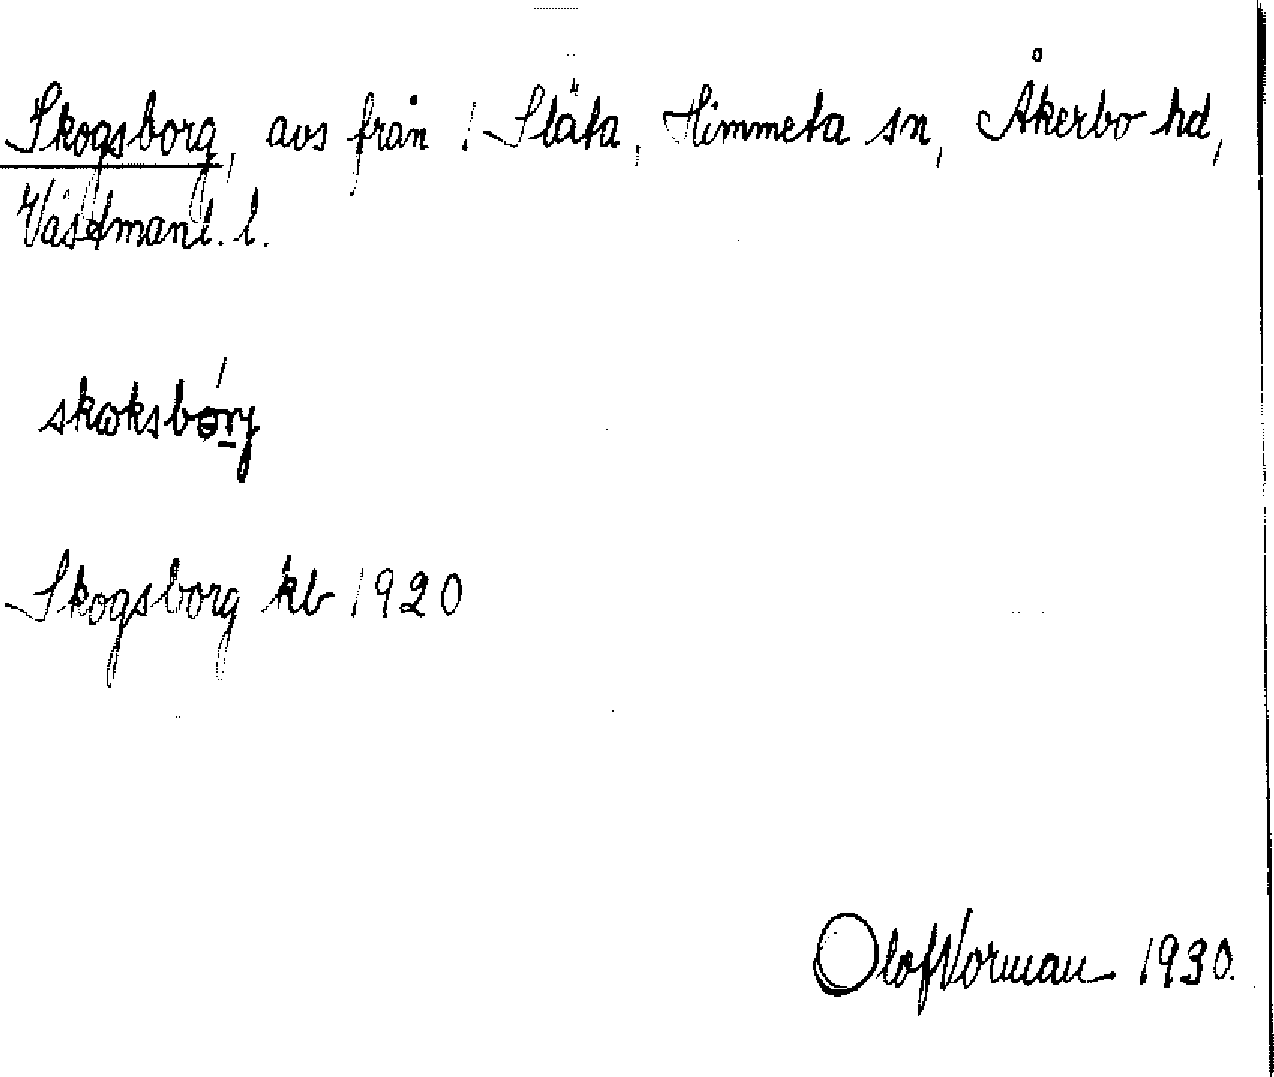 Skogsborg, avs från 1 Släta, Himmeta sn, Åkerbo hd,
Västmanl. l.
skoksbórj
Skogsborg kb 1920
Olof Norman 1930.